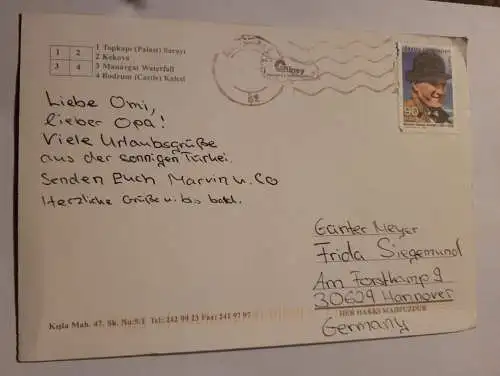 1 Topkapı (Palast) Sarayı
2 Kekova
3 Manavgat Waterfall
4 Bodrum (Castle) Kalesi
1 2
3 4
90
Liebe Omi,
lieber Opa!
Viele Urlaubsgrüße
aus der sonnigen Türkei.
Senden Euch Marvin u. Co
Herzliche Grüße u. bis bald.
Günter Meyer
Frida Siegemund
Am Forstkamp 9
30629 Hannover
Germany
Kışla Mah. 47. Sk. No:5/1 Tel: 242 99 23 Fax: 241 97 97
HER HAKKI MAHFUZDUR